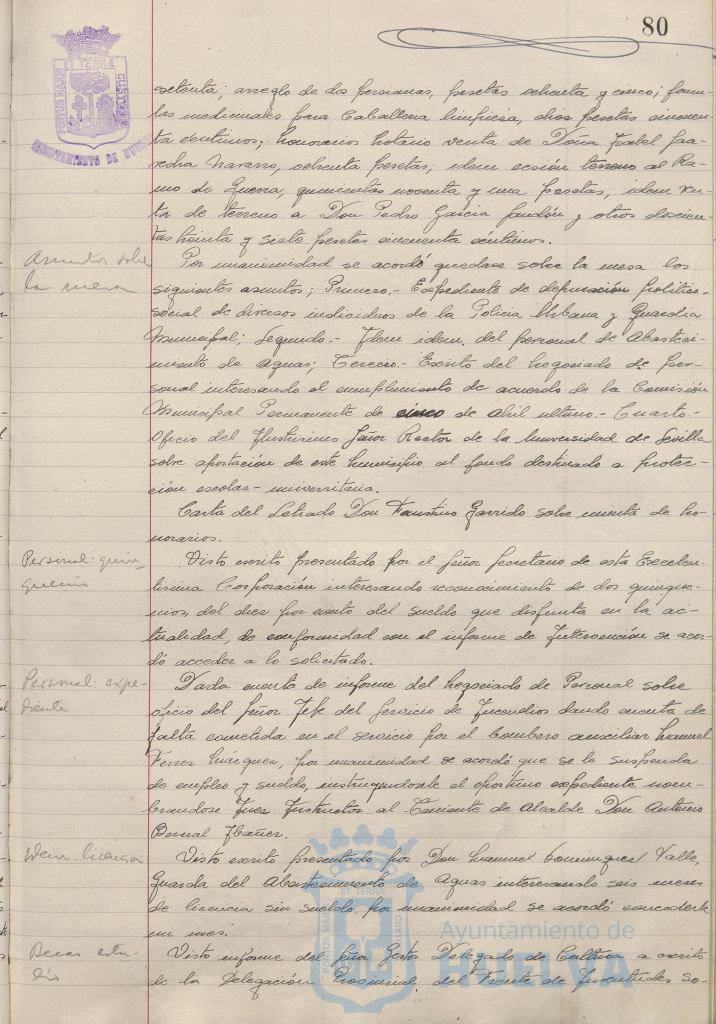 80
PORTUS MARIS ET TERRÆ CUSTODIA
AYUNTAMIENTO DE HUELVA
setenta; arreglo de dos persianas, pesetas ochenta y cinco; fórmu-
las medicinales para Caballería limpieza, diez pesetas cincuen-
ta céntimos; honorarios notario venta de Doña Isabel Saa-
vedra Navarro, ochenta pesetas; idem cesión terreno al Ra-
mo de Guerra, quinientas noventa y una pesetas; idem ven-
ta de terreno a Don Pedro Garcia Jandón y otros doscien-
tas treinta y siete pesetas cincuenta céntimos.
Asuntos sobre
la mesa
Por unanimidad se acordó quedase sobre la mesa los
siguientes asuntos; Primero.- Expediente de depuración politico-
social de diversos individuos de la Policia Urbana y Guardia
Municipal; Segundo.- Idem idem. del personal de Abasteci-
miento de Aguas; Tercero.- Escrito del Negociado de Per-
sonal interesando el cumplimiento de acuerdo de la Comisión
Municipal Permanente de cinco de Abril ultimo.- Cuarto.-
Oficio del Ilustrisimo Señor Rector de la Universidad de Sevilla
sobre aportación de este Municipio al fondo destinado a protec-
ción escolar-universitaria.
Carta del Letrado Don Faustino Garrido sobre minuta de ho-
norarios.
Personal: quin-
quenio
Visto escrito presentado por el Señor Secretario de esta Excelen-
tisima Corporación interesando reconocimiento de dos quinque-
nios, del diez por ciento del sueldo que disfruta en la ac-
tualidad, de conformidad con el informe de Intervención se acor-
dó acceder a lo solicitado.
Personal: expe-
diente
Dada cuenta de informe del Negociado de Personal sobre
oficio del Señor Jefe del Servicio de Incendios dando cuenta de
falta cometida en el servicio por el bombero auxiliar Manuel
Ferrer Márquez, por unanimidad se acordó que se le suspenda
de empleo y sueldo, instruyendosele el oportuno expediente nom-
brandose Juez Instructor al Teniente de Alcalde Don Antonio
Bernal Ibañez.
Idem: licencia
Visto escrito presentado por Don Manuel Dominguez Valle,
Guarda del Abastecimiento de Aguas interesando seis meses
de licencia sin sueldo, por unanimidad se acordó concederle
un mes.
Becas estu-
dio
Visto informe del Señor Gestor Delegado de Cultura a escrito
de la Delegación Provincial del Frente de Juventudes so-
PORTUS MARIS ET TERRÆ CUSTODIA
Ayuntamiento de
HUELVA